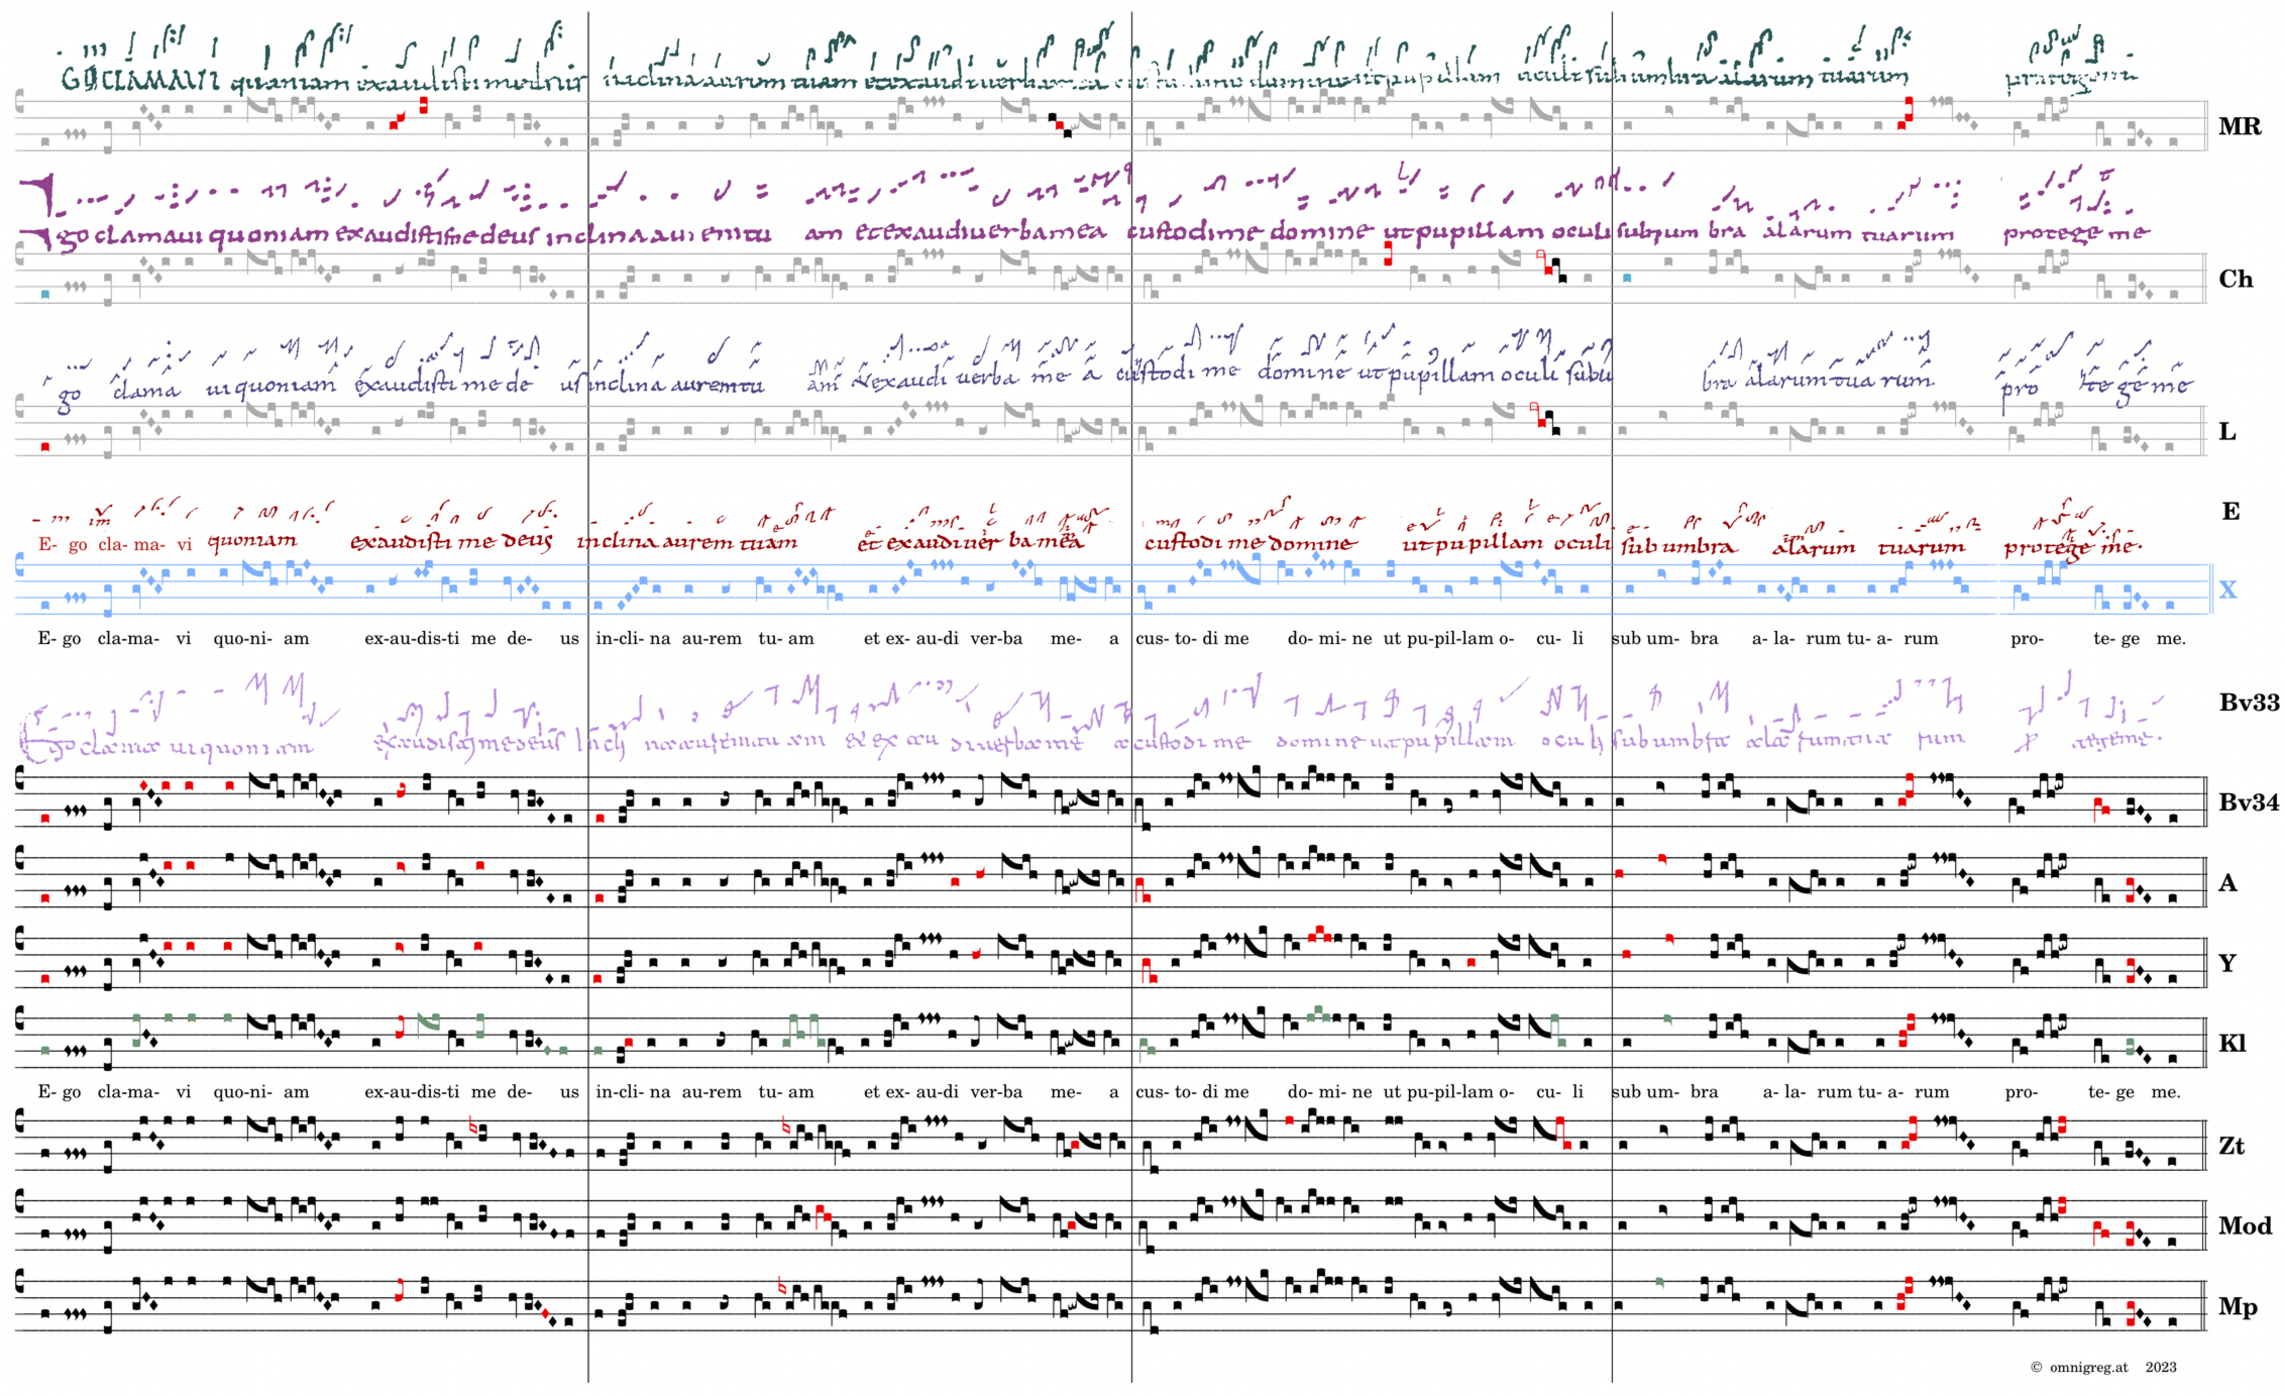 GO CLAMAVI quoniam exaudisti me deus inclina aurem tuam et exaudi verba mea custodi me domine ut pupillam oculi sub umbra alarum tuarum protege me
MR
go clamaui quoniam exaudisti me deus inclina aurem tuam et exaudi uerba mea custodi me domine ut pupillam oculi sub um bra alarum tuarum protege me
Ch
go clama ui quoniam exaudisti me de us inclina aurem tu am et exaudi uerba me a custodi me domine ut pupillam oculi subu bra alarum tua rum pro te ge me
L
E
E- go cla- ma- vi quoniam exaudisti me deus inclina aurem tuam et exaudi uer ba mea custodi me domine ut pupillam oculi sub umbra alarum tuarum protege me.
X
E- go cla-ma- vi quo-ni- am ex-au-dis-ti me de- us in-cli- na au-rem tu- am et ex- au-di ver-ba me- a cus- to- di me do- mi- ne ut pu-pil-lam o- cu- li sub um- bra a- la- rum tu- a- rum pro- te- ge me.
Bv33
go clama ui quoniam me deus custodi me domine sub umbra
Bv34
A
Y
Kl
E- go cla-ma- vi quo-ni- am ex-au-dis-ti me de- us in-cli- na au-rem tu- am et ex- au-di ver-ba me- a cus- to- di me do- mi- ne ut pu-pil-lam o- cu- li sub um- bra a- la- rum tu- a- rum pro- te- ge me.
Zt
Mod
Mp
© omnigreg.at 2023